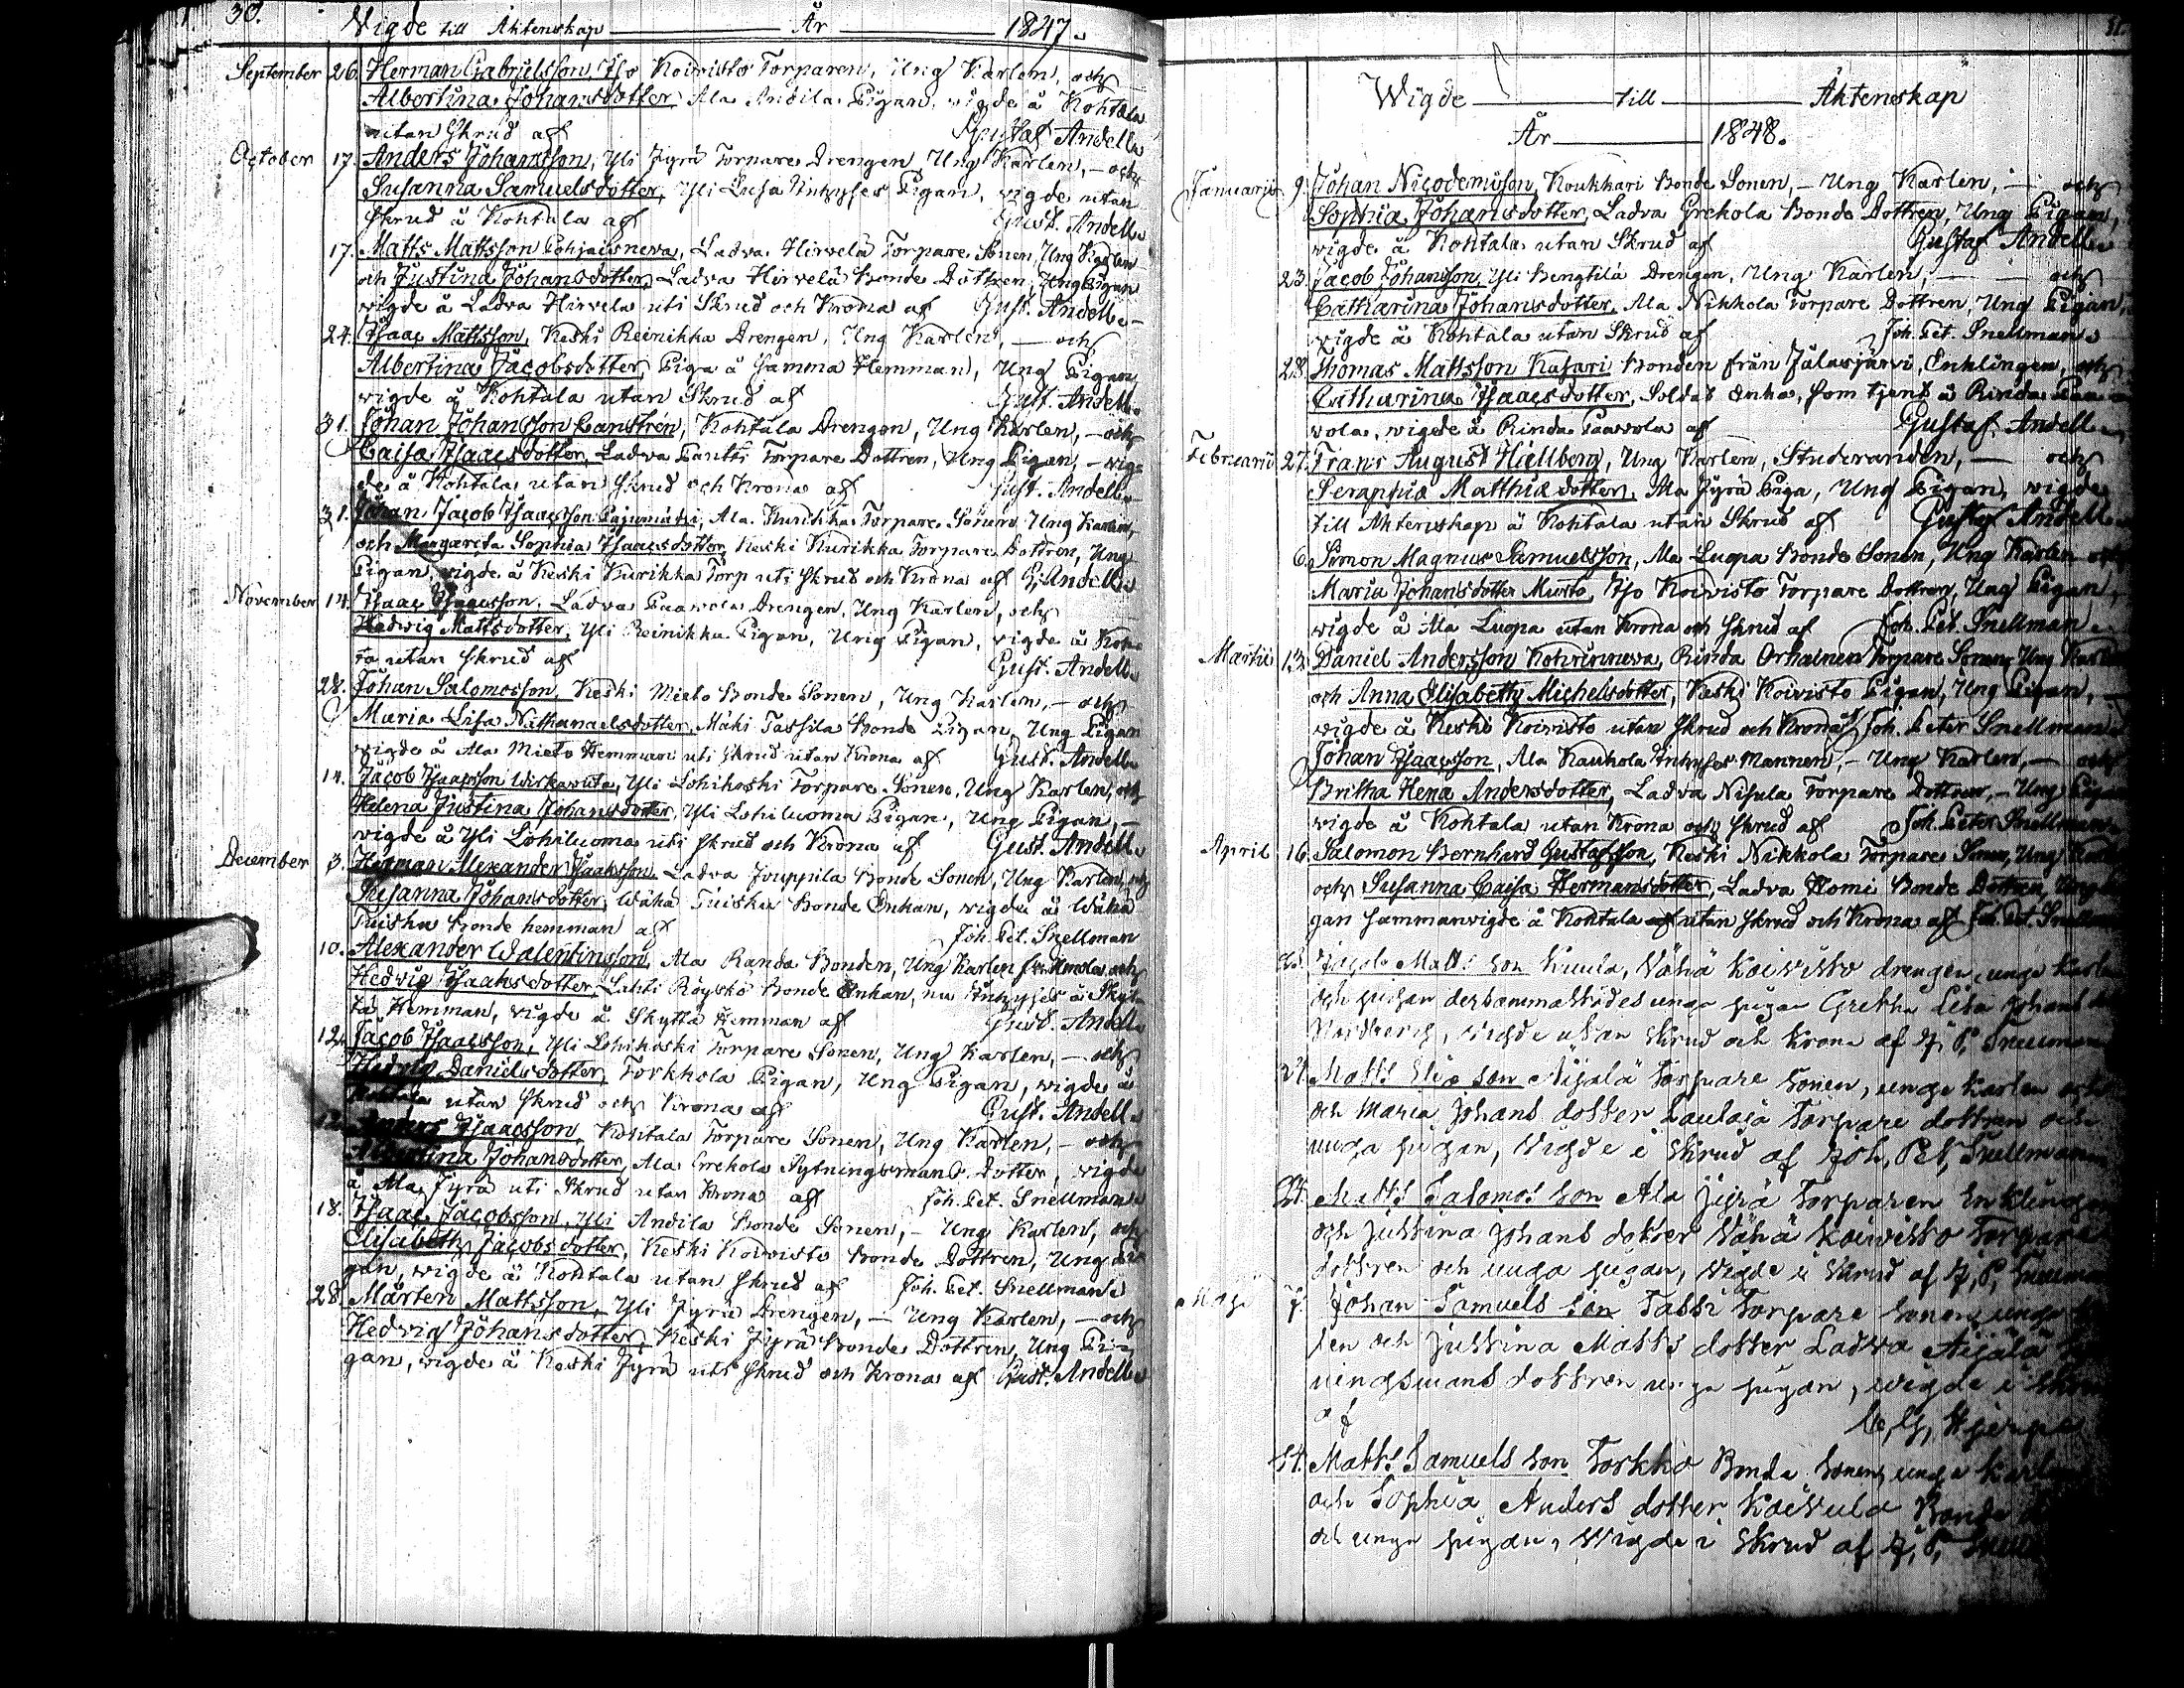 30.
Vigde till Äktenskap År 1847.
September 26. Herman Gabrielsson Iso Koivisto Torparen, Ung Karlen, och
Albertina Johansdotter, Ala Andila Pigan, vigde å Kohtala
utan Skrud af Gustaf Andell
October 17. Anders Johansson, Yli Jyrä Tornare Drengen, Ung Karlen, – och
Susanna Samuelsdotter, Yli Lusa Inhyses Pigan, vigde utan
skrud å Kohtala af Gust. Andell
17. Matts Mattsson Pohjaisneva, Ladva Hirvelä Torpare Sonen, Ung Karlen
och Justina Johansdotter, Ladva Hirvelä Bonde Dottren, Ung Pigan
vigde å Ladva Hirvela uti Skrud och Krona af Gust. Andell
24. Isaac Mattsson, Keski Reinikka Drengen, Ung Karlen, – och
Albertina Jacobsdotter, Piga å Samma Hemman, Ung Pigan
vigde å Kohtala utan Skrud af Gust. Andell
31. Johan Johansson Canstrén, Kohtala Drengen, Ung Karlen, – och
Caisa Isaacsdotter, Ladva Panttî Torpare Dottren, Ung Pigan, – vig-
de å Kohtala utan Skrud och Krona af Gust. Andell
31. Johan Jacob Isaacsson Pajumäki, Ala Kurikka Torpare Sonen Ung Karlen,
och Margareta Sophia Isaacsdotter, Keski Kurikka Torpare Dottren, Ung
Pigan, vigde å Keski Kurikka Torp uti Skrud och Krona af G. Andell
November 14. Isaac Isaacsson, Ladva Paavola Drengen, Ung Karlen, och
Hedwig Mattsdotter, Yli Reinikka Pigan, Ung Pigan, vigde å
utan skrud af Gust. Andell
28. Johan Salomosson, Keski Mieto Bonde Sonen, Ung Karlen, – och
Maria Lisa Nathanaelsdotter, Mäki Passila Bonde Pigan, Ung Pigan
vigde å Ala Mieto Hemman uti skrud utan Krona af Gust. Andell
14. Jacob Isaacsson Wirkaruta, Yli Lohikoski Torpare Sonen, Ung Karlen, och
Helena Justina Johansdotter, Yli Lohiluoma Pigan, Ung Pigan, –
vigde å Yli Lohiluoma uti skrud och Krona af Gust. Andell
December 3. Herman Alexander Isaksson, Ladva Jouppila Bonde Sonen, Ung Karlen, och
Susanna Johansdotter, Wähä Tuisku Bonde Enkan, vigde å Wähä
Tuisku Bonde hemman af Joh. Pet. Snellman
10. Alexander Walentinsson, Ala Randa Bonden, Ung Karlen och
Hedvig Isaaksdotter, Lahti Röyskö Bonde Enkan, nu Inhyses å Skyt-
tä Hemman, vigde å Skyttä Hemman af Gust. Andell
12. Jacob Isaacsson, Yli Lohikoski Torpare Sonen, Ung Karlen, – och
Hedvig Danielsdotter, Torkkola Pigan, Ung Pigan, vigde å
Kohtala utan Skrud och Krona af Gust. Andell
12. Isaacsson, Kohtala Torpare Sonen, Ung Karlen, – och
Albertina Johansdotter, Ala Grekola Sytningsmans Dotter, vigde
å Ala Jyrä uti Skrud utan Krona af Joh. Pet. Snellman
18. Isaac Jacobsson, Yli Andila Bonde Sonen, – Ung Karlen, och
Elisabeth Jacobsdotter, Keski Koivisto Bonde Dottren, Ung Pi-
gan, vigde å Kohtala utan skrud af Joh. Pet. Snellman
28. Mårten Mattsson, Yli Jyrä Drengen, – Ung Karlen, – och
Hedvig Johansdotter, Keski Jyrä Bonde Dottren, Ung Pi-
gan, vigde å Keski Jyrä uti Skrud och Krona af Gust. Andell
Wigde till Äktenskap
År 1848.
Januarii 9. Johan Nicodemusson, Koukkari Bonde Sonen, – Ung Karlen, – och
Sophia Johansdotter, Ladva Grekola Bonde Dottren, Ung Pigan,
vigde å Kohtala utan Skrud af Gustaf Andell
23. Jacob Johansson, Yli Bengtilä Drengen, Ung Karlen, – och
Catharina Johansdotter, Ala Nikkola Torpare Dottren, Ung Pigan,
vigde å Kohtala utan Skrud af Joh. Pet. Snellman
28. Thomas Mattsson Kasari Bonden från Jalasjärvi, Enklingen, och
Catharina Isaacsdotter, Soldat Enka, som tjent å Rinda Paa-
vola, vigde å Rinda Paavola af Gustaf Andell
Februarii 27. Frans August Hiellberg, Ung Karlen, Studeranden, – och
Seraphia Matthiædotter, Ala Jyrä Piga, Ung Pigan, vigde
till Äktenskap å Kohtala utan Skrud af Gustaf Andell
6. Simon Magnus Samuelsson, Ala Luopa Bonde Sonen, Ung Karlen och
Maria Johansdotter Mursto, Iso Koivisto Torpare Dottren, Ung Pigan,
vigde å Ala Luopa utan Krona och skrud af Joh. Pet. Snellman
Martii 12. Daniel Andersson Koivunneva, Rinda Orhalnen Torpare Sonen, Ung Karlen
och Anna Elisabeth Michelsdotter, Keski Koivisto Pigan, Ung Pigan, –
vigde å Keski Koivisto utan skrud och Krona af Joh. Peter Snellman
Johan Isaacsson, Ala Kauhola Inhyses Mannen, – Ung Karlen, – och
Britha Hena Andersdotter, Ladva Nisula Torpare Dottren, – Ung
vigde å Kohtala utan Krona och skrud af Joh. Peter Snellman
April 16. Salomon Bernhard Gustafsson, Keski Nikkola Torpare Sonen, Ung
och Susanna Caisa Hermansdotter, Ladva Homi Bonde Dottren, Ung
gan sammanvigde å Kohtala utan skrud och Krona af Joh. Pet.
Jacob Matts Son Kuula, Vähä Koivisto drengen, unga Karlen
och pigan dersammastädes unga pigan Gretha Lisa Johans
Nordberg, vigde utan Skrud och Krona af J, P, Snellman
24. Matts Elia Son Aijälä Torpare Sonen, unga Karlen
och Maria Johans dotter Laulaja Torpare dottren och
unga pigan, Vigde i Skrud af Joh, Pet, Snellman
24. Matts Salomos Son Ala Jyrä Torparen Enklingen
och Justina Johans dotter Vähä Koivisto Torpare
dottren och unga pigan, Vigde i Skrud af J, P,
Maji 7. Johan Samuels Son Tassi Torpare Sonen unga
len och Justina Matts dotter Ladva Aijälä
ningsmans dottren unga pigan, wigde i
af
14. Matts Samuels Son Torkko Bonde Sonen, unga Karlen
och Sophia Anders dotter Koivula Bonde
och unga pigan, Vigde i Skrud af J, P,